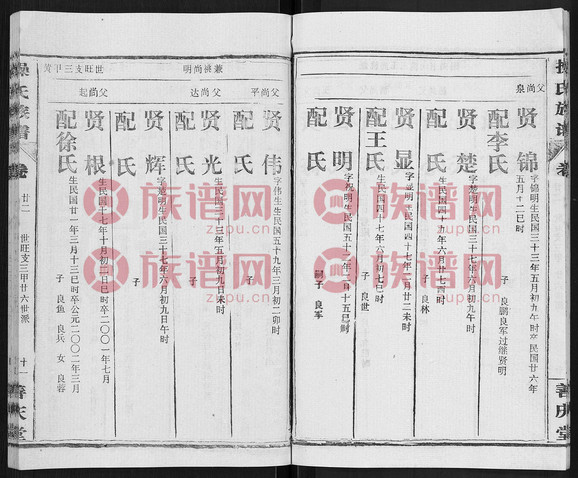 操氏族谱
卷
善庆堂
父尚泉
贤锦
字锦明生民国三十三年五月初九午时卒民国廿六年
五月十二巳时
配李氏
子 良鹏良军过继贤明
贤楚
字楚明生民国三十七年六月初九午时
配 氏
生民国四十九年六月廿七酉时
子 良林
贤显
字显明生民国四十七年二月廿二未时
配王氏
生民国四十七年六月初七巳时
子 良世
贤明
配 氏
嗣子 良军
兼祧尚明
父尚平
贤伟
字伟生生民国五十九年三月初二卯时
配 氏
子
父尚达
贤光
生民国三十三年五月初九日未时
配 氏
子
贤辉
字辉明生民国三十七年六月初九日午时
配 氏
子
世旺支三甲
父尚起
贤根
生民国十七年十月初二日巳时卒二〇〇一年七月
配徐氏
生民国廿一年三月十三巳时卒公元二〇〇二年三月
子 良鱼 良兵 女 良蓉
操氏族谱
卷
廿二
世旺支三甲廿六世派
十一
善庆堂
族谱网
zupu.cn
族谱网
zupu.cn
族谱网
zupu.cn
族谱网
zupu.cn